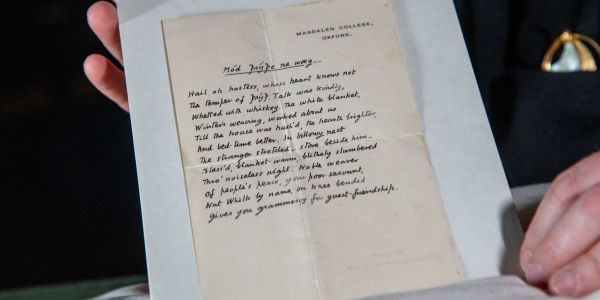 MAGDALEN COLLEGE,
OXFORD.
Mód Þrýþe ne wæg..
Hail oh hostess, whose heart knows not
The temper of Þrýþ. Talk was kindly,
Whetted with whiskey. The white blanket,
Winter's weaving, worked about us
Till the house was hush'd, the hearth brighter,
And bed-time better. In billowy nest
The stranger stretched - stove beside him -
Bless'd, blanket-warm, blithely slumbered
Thro' noiseless night. Noble weaver
Of people's peace, your poor servant,
Nat Whilk by name, on knee bended
Gives you grammercy for guest-friendship.